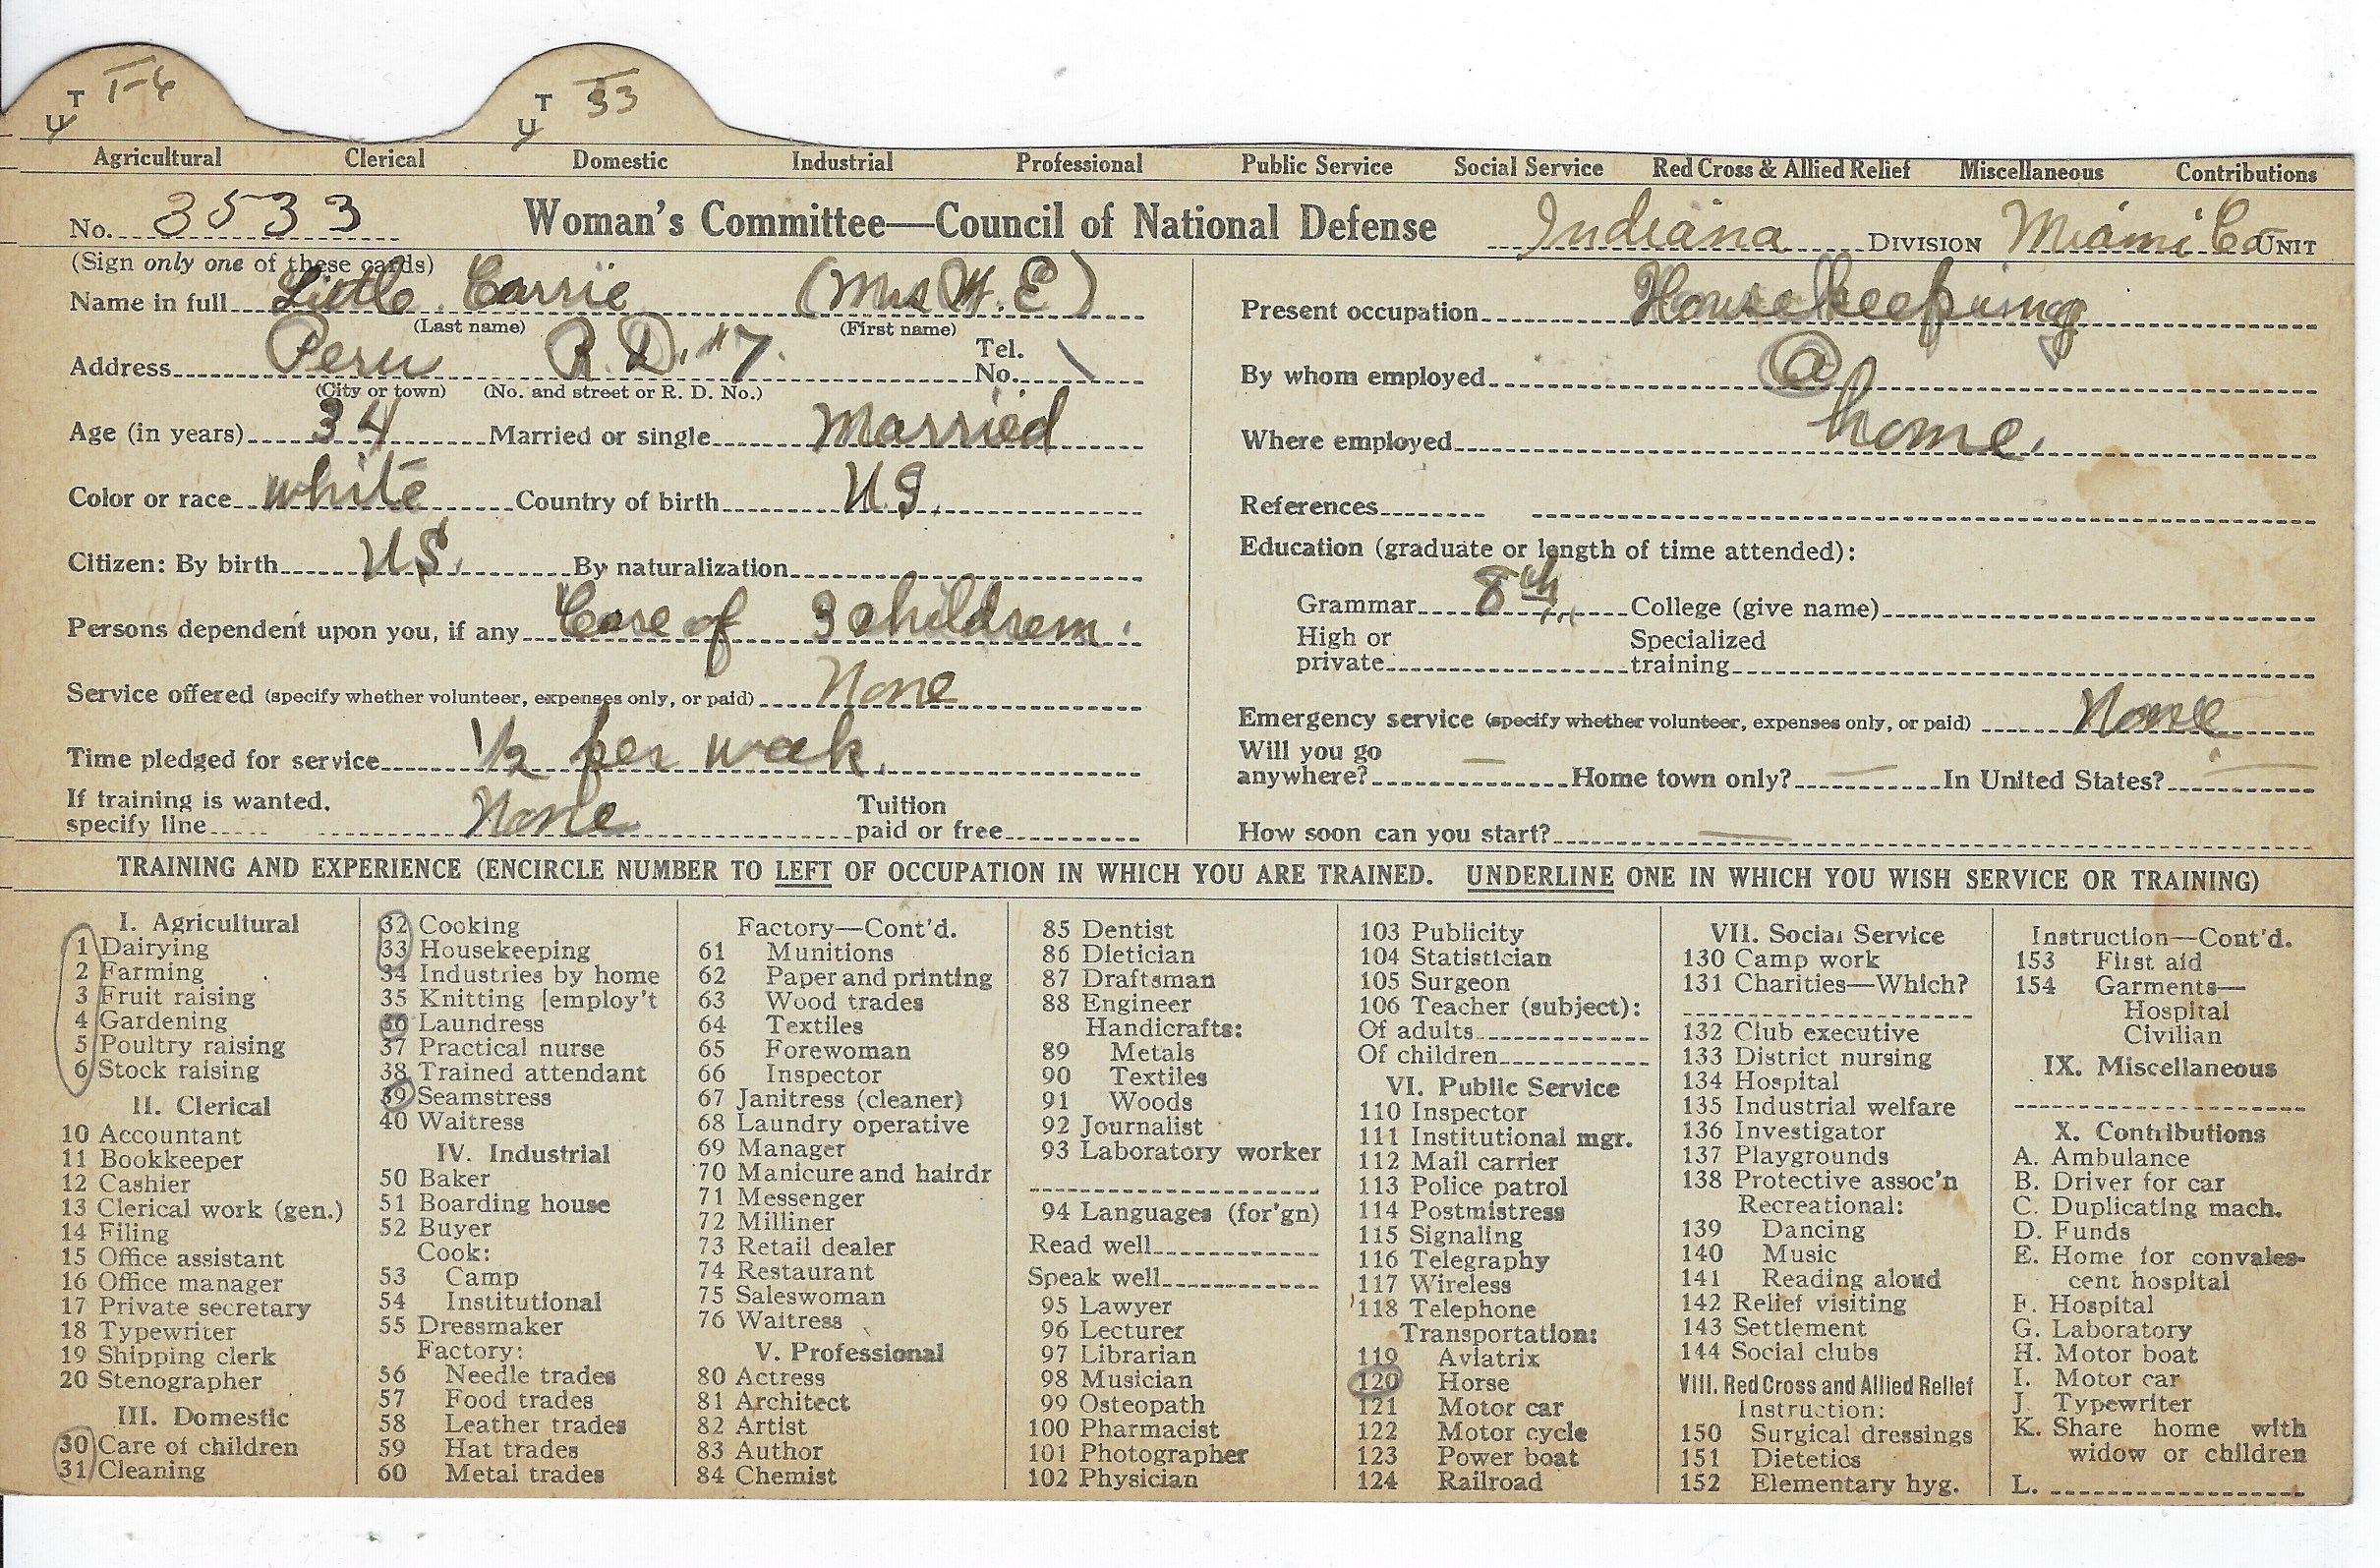 T 1-6 T 33
U U
Agricultural Clerical Domestic Industrial Professional Public Service Social Service Red Cross & Allied Relief Miscellaneous Contributions
No. 3533 Woman's Committee—Council of National Defense Indiana DIVISION Miami Co UNIT
(Sign only one of these cards)
Name in full Little Carrie (Mrs W. E)
(Last name) (First name)
Address Peru R. D. #7. Tel. No.
(City or town) (No. and street or R. D. No.)
Age (in years) 34 Married or single Married
Color or race white Country of birth U.S.
Citizen: By birth US. By naturalization
Persons dependent upon you, if any Care of 3 children.
Service offered (specify whether volunteer, expenses only, or paid) None
Time pledged for service 1/2 per week.
If training is wanted, specify line None Tuition paid or free
Present occupation Housekeeping
By whom employed @
Where employed home.
References
Education (graduate or length of time attended):
Grammar 8th College (give name)
High or private Specialized training
Emergency service (specify whether volunteer, expenses only, or paid) None
Will you go anywhere? — Home town only? — In United States? —
How soon can you start? —
TRAINING AND EXPERIENCE (ENCIRCLE NUMBER TO LEFT OF OCCUPATION IN WHICH YOU ARE TRAINED. UNDERLINE ONE IN WHICH YOU WISH SERVICE OR TRAINING)
I. Agricultural
1 Dairying
2 Farming
3 Fruit raising
4 Gardening
5 Poultry raising
6 Stock raising
II. Clerical
10 Accountant
11 Bookkeeper
12 Cashier
13 Clerical work (gen.)
14 Filing
15 Office assistant
16 Office manager
17 Private secretary
18 Typewriter
19 Shipping clerk
20 Stenographer
III. Domestic
30 Care of children
31 Cleaning
32 Cooking
33 Housekeeping
34 Industries by home
35 Knitting [employ't
36 Laundress
37 Practical nurse
38 Trained attendant
39 Seamstress
40 Waitress
IV. Industrial
50 Baker
51 Boarding house
52 Buyer
Cook:
53 Camp
54 Institutional
55 Dressmaker
Factory:
56 Needle trades
57 Food trades
58 Leather trades
59 Hat trades
60 Metal trades
Factory—Cont'd.
61 Munitions
62 Paper and printing
63 Wood trades
64 Textiles
65 Forewoman
66 Inspector
67 Janitress (cleaner)
68 Laundry operative
69 Manager
70 Manicure and hairdr
71 Messenger
72 Milliner
73 Retail dealer
74 Restaurant
75 Saleswoman
76 Waitress
V. Professional
80 Actress
81 Architect
82 Artist
83 Author
84 Chemist
85 Dentist
86 Dietician
87 Draftsman
88 Engineer
Handicrafts:
89 Metals
90 Textiles
91 Woods
92 Journalist
93 Laboratory worker
94 Languages (for'gn)
Read well
Speak well
95 Lawyer
96 Lecturer
97 Librarian
98 Musician
99 Osteopath
100 Pharmacist
101 Photographer
102 Physician
103 Publicity
104 Statistician
105 Surgeon
106 Teacher (subject):
Of adults
Of children
VI. Public Service
110 Inspector
111 Institutional mgr.
112 Mail carrier
113 Police patrol
114 Postmistress
115 Signaling
116 Telegraphy
117 Wireless
118 Telephone
Transportation:
119 Aviatrix
120 Horse
121 Motor car
122 Motor cycle
123 Power boat
124 Railroad
VII. Social Service
130 Camp work
131 Charities—Which?
132 Club executive
133 District nursing
134 Hospital
135 Industrial welfare
136 Investigator
137 Playgrounds
138 Protective assoc'n
Recreational:
139 Dancing
140 Music
141 Reading aloud
142 Relief visiting
143 Settlement
144 Social clubs
VIII. Red Cross and Allied Relief
Instruction:
150 Surgical dressings
151 Dietetics
152 Elementary hyg.
Instruction—Cont'd.
153 First aid
154 Garments—
Hospital
Civilian
IX. Miscellaneous
X. Contributions
A. Ambulance
B. Driver for car
C. Duplicating mach.
D. Funds
E. Home for convales-
cent hospital
F. Hospital
G. Laboratory
H. Motor boat
I. Motor car
J. Typewriter
K. Share home with
widow or children
L.